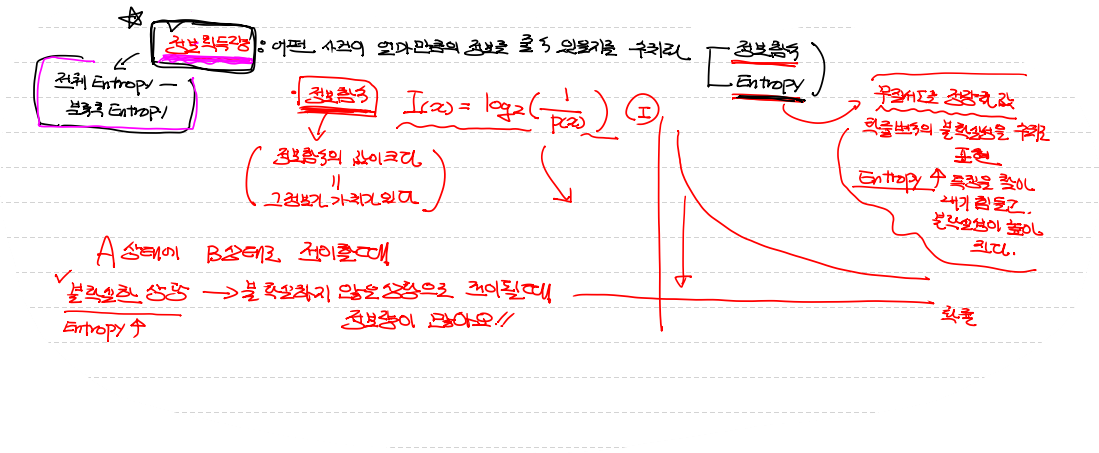 정보획득량 : 어떤 사건이 얼마만큼의 정보를 줄 수 있을지를 수치화
정보함수
Entropy
전체 Entropy -
분류후 Entropy
· 정보함수 I(x) = log2(1/p(x)) I
정보함수의 값이 크다
=
그 정보가 가치가 있다
무질서도를 정량화 값
확률변수의 불확실성을 수치로
표현
Entropy ↑ 특징을 찾아
내기 힘들고.
불확실성이 높아
진다.
A상태에 B상태로 전이할때
불확실한 상황 → 불확실하지 않은 상황으로 전이될때
Entropy ↑ 정보량이 많아요!!
확률